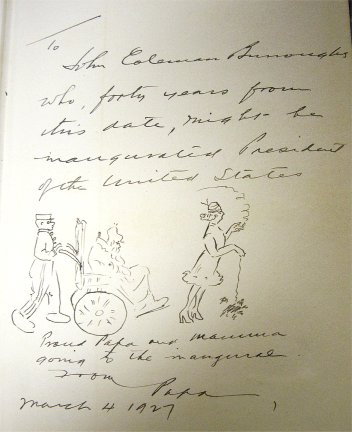 To
John Coleman Burroughs
who, forty years from
this date, might be
inaugurated President
of the United States
Proud Papa and Mamma
going to the inaugural.
From Papa
March 4 1927